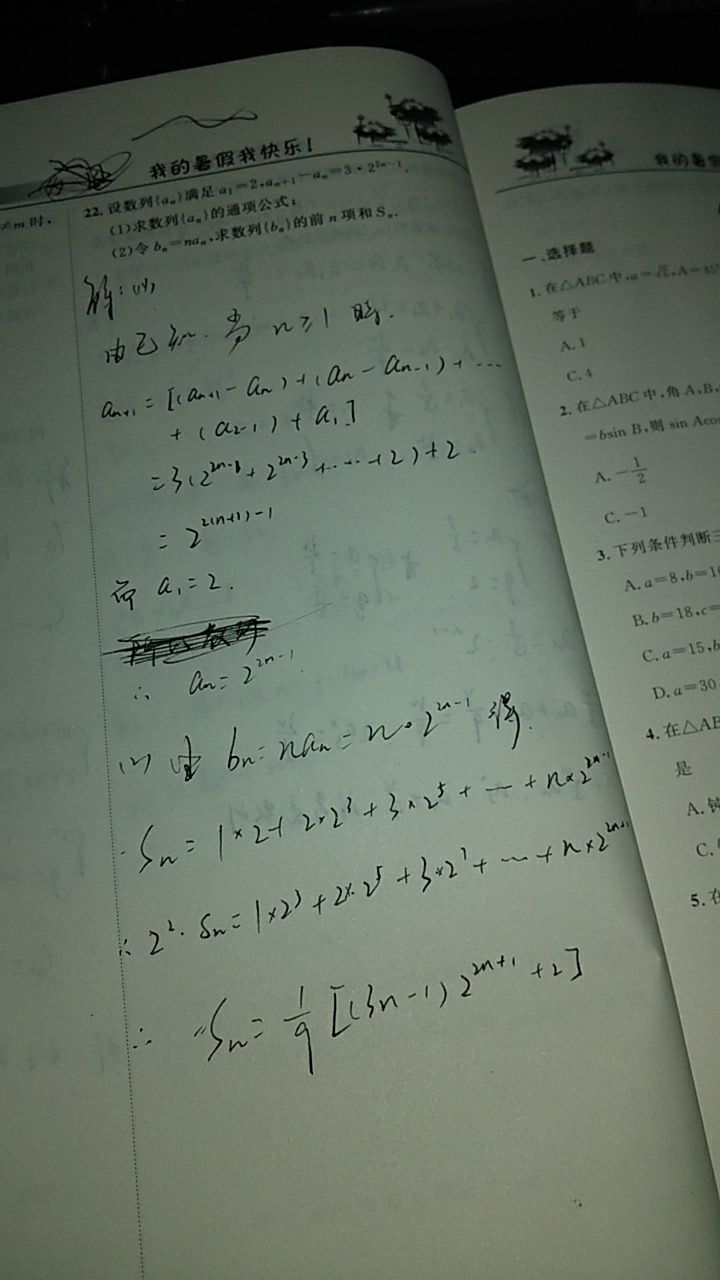 我的暑假我快乐!
≠m时,
22. 设数列{aₙ}满足a₁=2,aₙ₊₁-aₙ=3·2²ⁿ⁻¹.
(1)求数列{aₙ}的通项公式;
(2)令bₙ=naₙ,求数列{bₙ}的前n项和Sₙ.
解:(1)
由已知.当n≥1时.
aₙ₊₁=[(aₙ₊₁-aₙ)+(aₙ-aₙ₋₁)+…
+(a₂-₁)+a₁]
=3(2²ⁿ⁻¹+2²ⁿ⁻³+…+2)+2
=2²⁽ⁿ⁺¹⁾⁻¹
而a₁=2.
∴ aₙ=2²ⁿ⁻¹.
(2) 由bₙ=naₙ=n·2²ⁿ⁻¹得.
Sₙ=1×2+2×2³+3×2⁵+…+n×2²ⁿ⁻¹
∴2²·Sₙ=1×2³+2×2⁵+3×2⁷+…+n×2²ⁿ⁺¹
∴ Sₙ=1/9[(3n-1)2²ⁿ⁺¹+2]
我的暑假
一、选择题
1. 在△ABC中,a=√2,A=45°
等于
A. 1
C. 4
2. 在△ABC中,角A,B,
=bsin B,则sin Acos
A. -1/2
C. -1
3. 下列条件判断三
A. a=8,b=16
B. b=18,c=
C. a=15,b
D. a=30
4. 在△AB
是
A. 钝
C.
5. 在